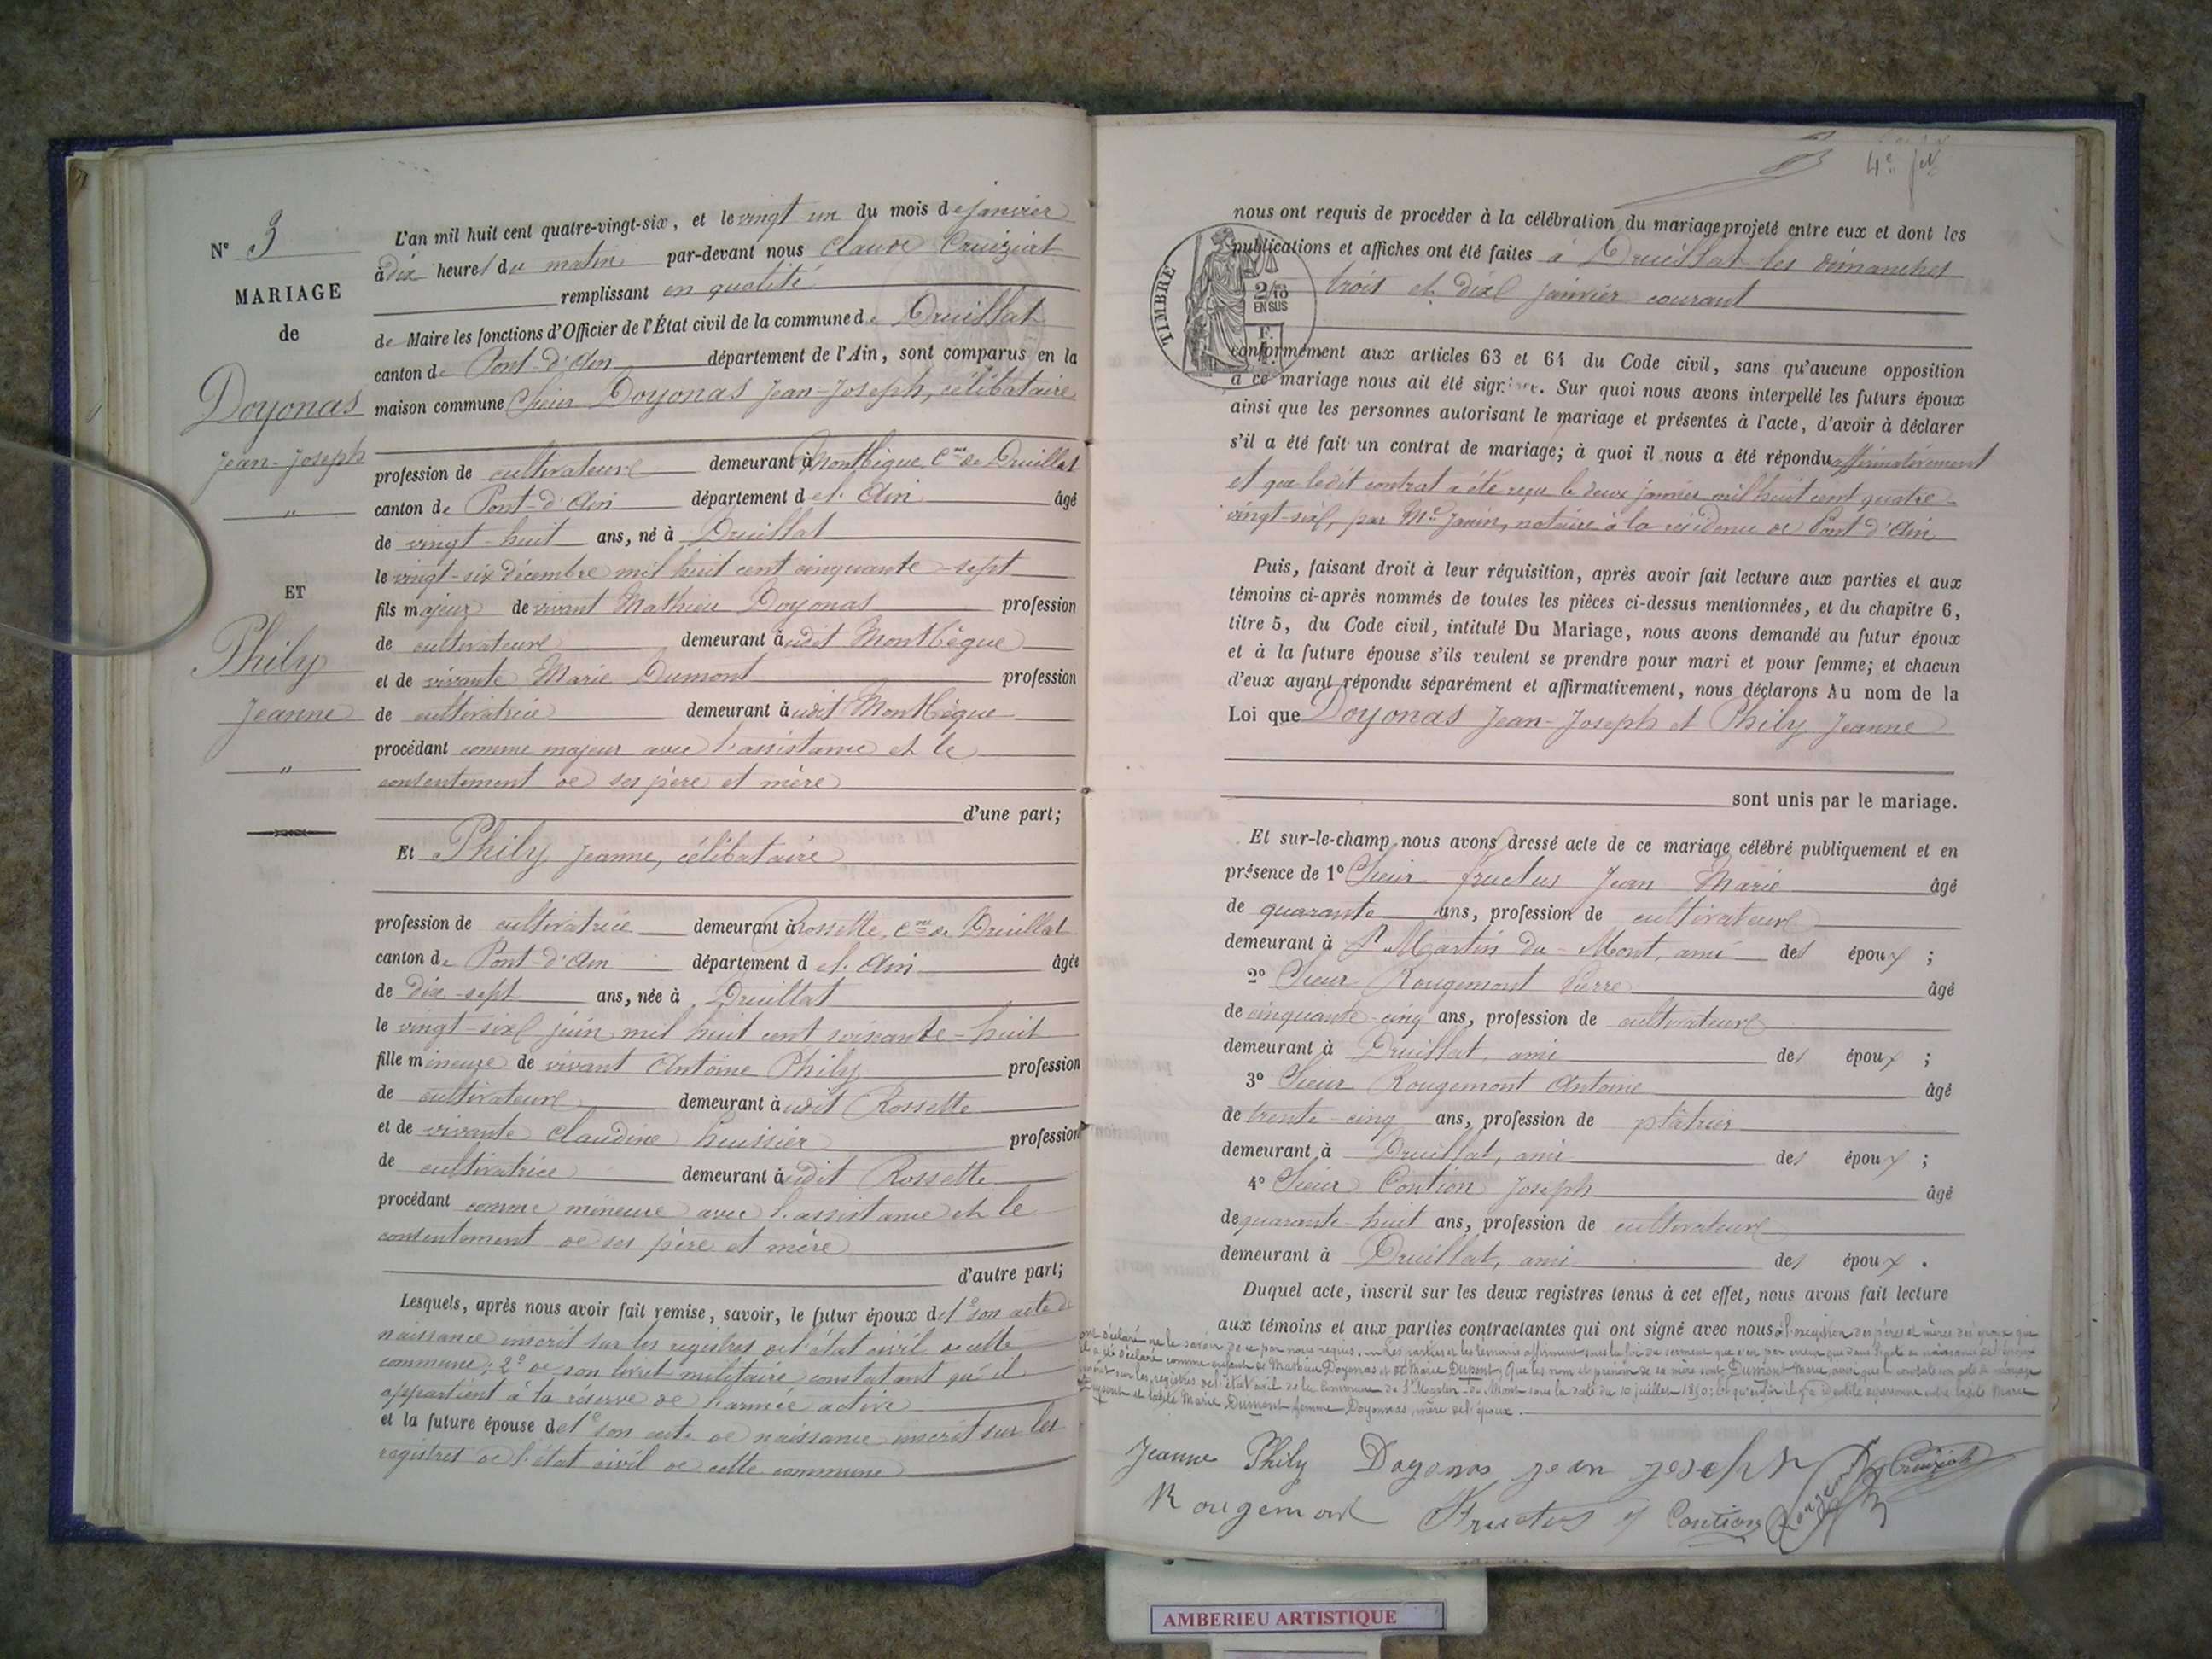 N° 3
MARIAGE
de
Doyonas
Jean-Joseph
"
ET
Phily
Jeanne
"
L'an mil huit cent quatre-vingt-six, et le vingt un du mois de janvier
à dix heures du matin par-devant nous Claude Cruiziat
remplissant en qualité
de Maire les fonctions d'Officier de l'État civil de la commune de Druillat
canton de Pont-d'Ain département de l'Ain, sont comparus en la
maison commune Sieur Doyonas Jean-Joseph, célibataire
profession de cultivateur demeurant à Monthègue, Cne de Druillat
canton de Pont-d'Ain département de l'Ain âgé
de vingt-huit ans, né à Druillat
le vingt-six décembre mil huit cent cinquante-sept
fils majeur de vivant Mathieu Doyonas profession
de cultivateur demeurant à udit Monthègue
et de vivante Marie Dumont profession
de cultivatrice demeurant à udit Monthègue
procédant comme majeur avec l'assistance et le
consentement de ses père et mère
d'une part;
Et Phily Jeanne, célibataire
profession de cultivatrice demeurant à Rossette, Cne de Druillat
canton de Pont-d'Ain département de l'Ain âgée
de dix-sept ans, née à Druillat
le vingt-six juin mil huit cent soixante-huit
fille mineure de vivant Antoine Phily profession
de cultivateur demeurant à udit Rossette
et de vivante Claudine Huissier profession
de cultivatrice demeurant à udit Rossette
procédant comme mineure avec l'assistance et le
consentement de ses père et mère
d'autre part;
Lesquels, après nous avoir fait remise, savoir, le futur époux de 1° son acte de
naissance inscrit sur les registres de l'état civil de cette
commune; 2° de son livret militaire constatant qu'il
appartient à la réserve de l'armée active
et la future épouse de 1° son acte de naissance inscrit sur les
registres de l'état civil de cette commune
4e
TIMBRE
2/10
EN SUS
nous ont requis de procéder à la célébration du mariage projeté entre eux et dont les
publications et affiches ont été faites à Druillat les dimanches
trois et dix janvier courant
conformément aux articles 63 et 64 du Code civil, sans qu'aucune opposition
à ce mariage nous ait été signifiée. Sur quoi nous avons interpellé les futurs époux
ainsi que les personnes autorisant le mariage et présentes à l'acte, d'avoir à déclarer
s'il a été fait un contrat de mariage; à quoi il nous a été répondu affirmativement
et que ledit contrat a été reçu le deux janvier mil huit cent quatre-
vingt-six, par Me Janin, notaire à la résidence de Pont-d'Ain
Puis, faisant droit à leur réquisition, après avoir fait lecture aux parties et aux
témoins ci-après nommés de toutes les pièces ci-dessus mentionnées, et du chapitre 6,
titre 5, du Code civil, intitulé Du Mariage, nous avons demandé au futur époux
et à la future épouse s'ils veulent se prendre pour mari et pour femme; et chacun
d'eux ayant répondu séparément et affirmativement, nous déclarons Au nom de la
Loi que Doyonas Jean-Joseph et Phily Jeanne
sont unis par le mariage.
Et sur-le-champ nous avons dressé acte de ce mariage célébré publiquement et en
présence de 1° Sieur Fructus Jean Marie âgé
de quarante ans, profession de cultivateur
demeurant à St Martin-du-Mont, ami des époux ;
2° Sieur Rougemont Pierre âgé
de cinquante-cinq ans, profession de cultivateur
demeurant à Druillat, ami des époux ;
3° Sieur Rougemont Antoine âgé
de trente-cinq ans, profession de plâtrier
demeurant à Druillat, ami des époux ;
4° Sieur Contion Joseph âgé
de quarante-huit ans, profession de cultivateur
demeurant à Druillat, ami des époux .
Duquel acte, inscrit sur les deux registres tenus à cet effet, nous avons fait lecture
aux témoins et aux parties contractantes qui ont signé avec nous à l'exception des pères et mères des époux qui
ont déclaré ne le savoir de ce par nous requis. Les parties et les témoins affirment sous la foi du serment que c'est par erreur que dans l'acte de naissance de l'époux
il a été déclaré comme enfant de Mathieu Doyonas et de Marie Dupont, que les nom et prénom de sa mère sont Dumont Marie ainsi que le constate son acte de mariage
inscrit sur les registres de l'état civil de la commune de St Martin-du-Mont sous la date du 10 juillet 1850; et qu'enfin il y a identité de personne entre ladite Marie
Dupont et ladite Marie Dumont femme Doyonnas, mère de l'époux.
Jeanne Phily Doyonas jean joseph Cruiziat
Rougemont Fructus Contion Rougemont
AMBERIEU ARTISTIQUE